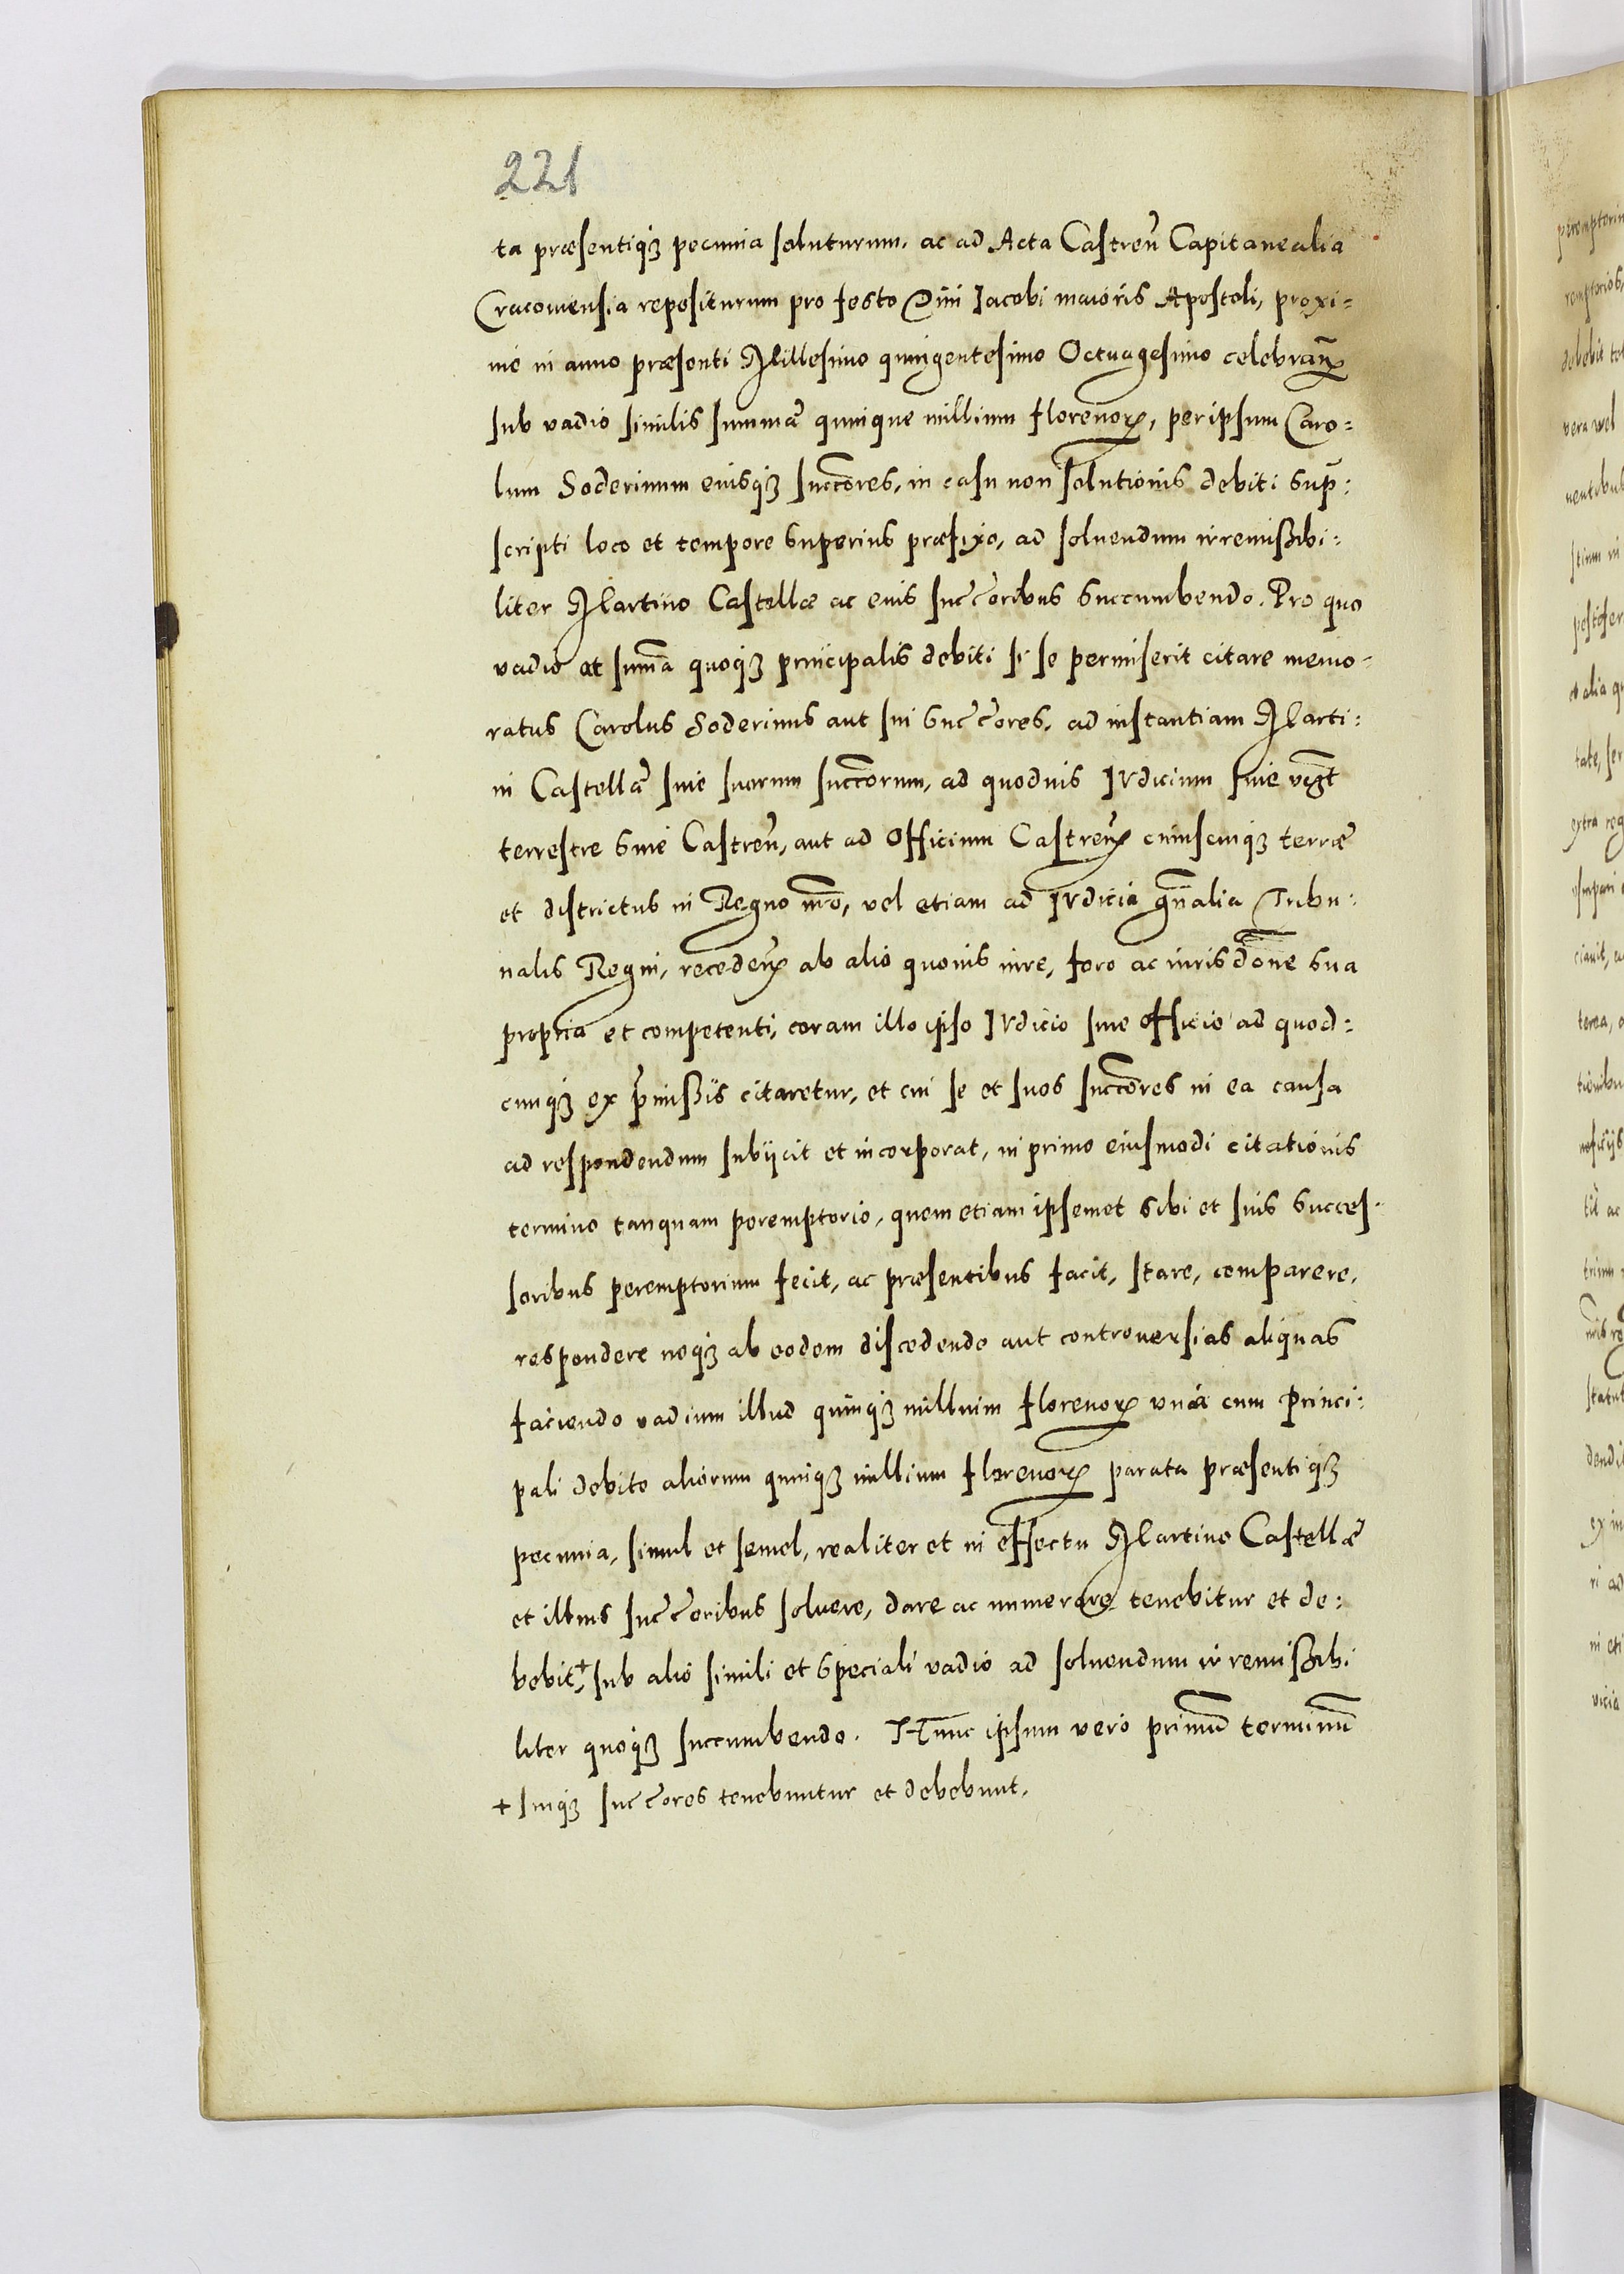 221
ta præsentiq3 pecunia soluturum, ac ad Acta Castren̄ Capitanealia
Cracouiensia repositurum pro festo Diui Iacobi maioris Apostoli, proxi=
me in anno præsenti Millesimo quingentesimo Octuagesimo celebran̄
sub vadio similis summæ quinque millium florenorꝝ, per ipsum Caro=
lum Soderinum eiusq3 succ̄ores, in casu non solutionis debiti sup̄:
scripti loco et tempore superius præfixo, ad soluendum irremissibi:
liter Martino Castellæ ac eius succ̄oribus succumbendo. Pro quo
vadio et sum̄a quoq3 principalis debiti si se permiserit citare memo-
ratus Carolus Soderinus aut sui succ̄ores, ad instantiam Marti:
ni Castellæ siue suorum succ̄orum, ad quoduis Iudicium siue vigt̄
terrestre siue Castren̄, aut ad Officium Castren̄ cuiuscunq3 terræ
et districtus in Regno nr̄o, vel etiam ad Iudicia gn̄alia Tribu:
nalis Regni, recedeñ ab alio quouis iure, foro ac iurisdōne sua
propria et competenti, coram illo ipso Iudicio siue officio ad quod=
cunq3 ex p̄missis citaretur, et cui se et suos succ̄ores in ea causa
ad respondendum subijcit et incorporat, in primo eiusmodi citationis
termino tanquam peremptorio, quem etiam ipsemet sibi et suis succes-
soribus peremptorium fecit, ac præsentibus facit, stare, comparere,
respondere neq3 ab eodem discedendo aut controuersias aliquas
faciendo vadium illud quinq3 millium florenorꝝ vná cum princi:
pali debito aliorum quinq3 millium florenorꝝ parata præsentiq3
pecunia, simul et semel, realiter et in effectu Martino Castellæ
et illius succ̄oribus soluere, dare ac numerare tenebitur et de:
bebit,+ sub alio simili et speciali vadio ad soluendum irremissibi
liter quoq3 succumbendo. Hunc ipsum vero primum̄ terminum̄
+ suiq3 succ̄ores tenebuntur et debebunt,